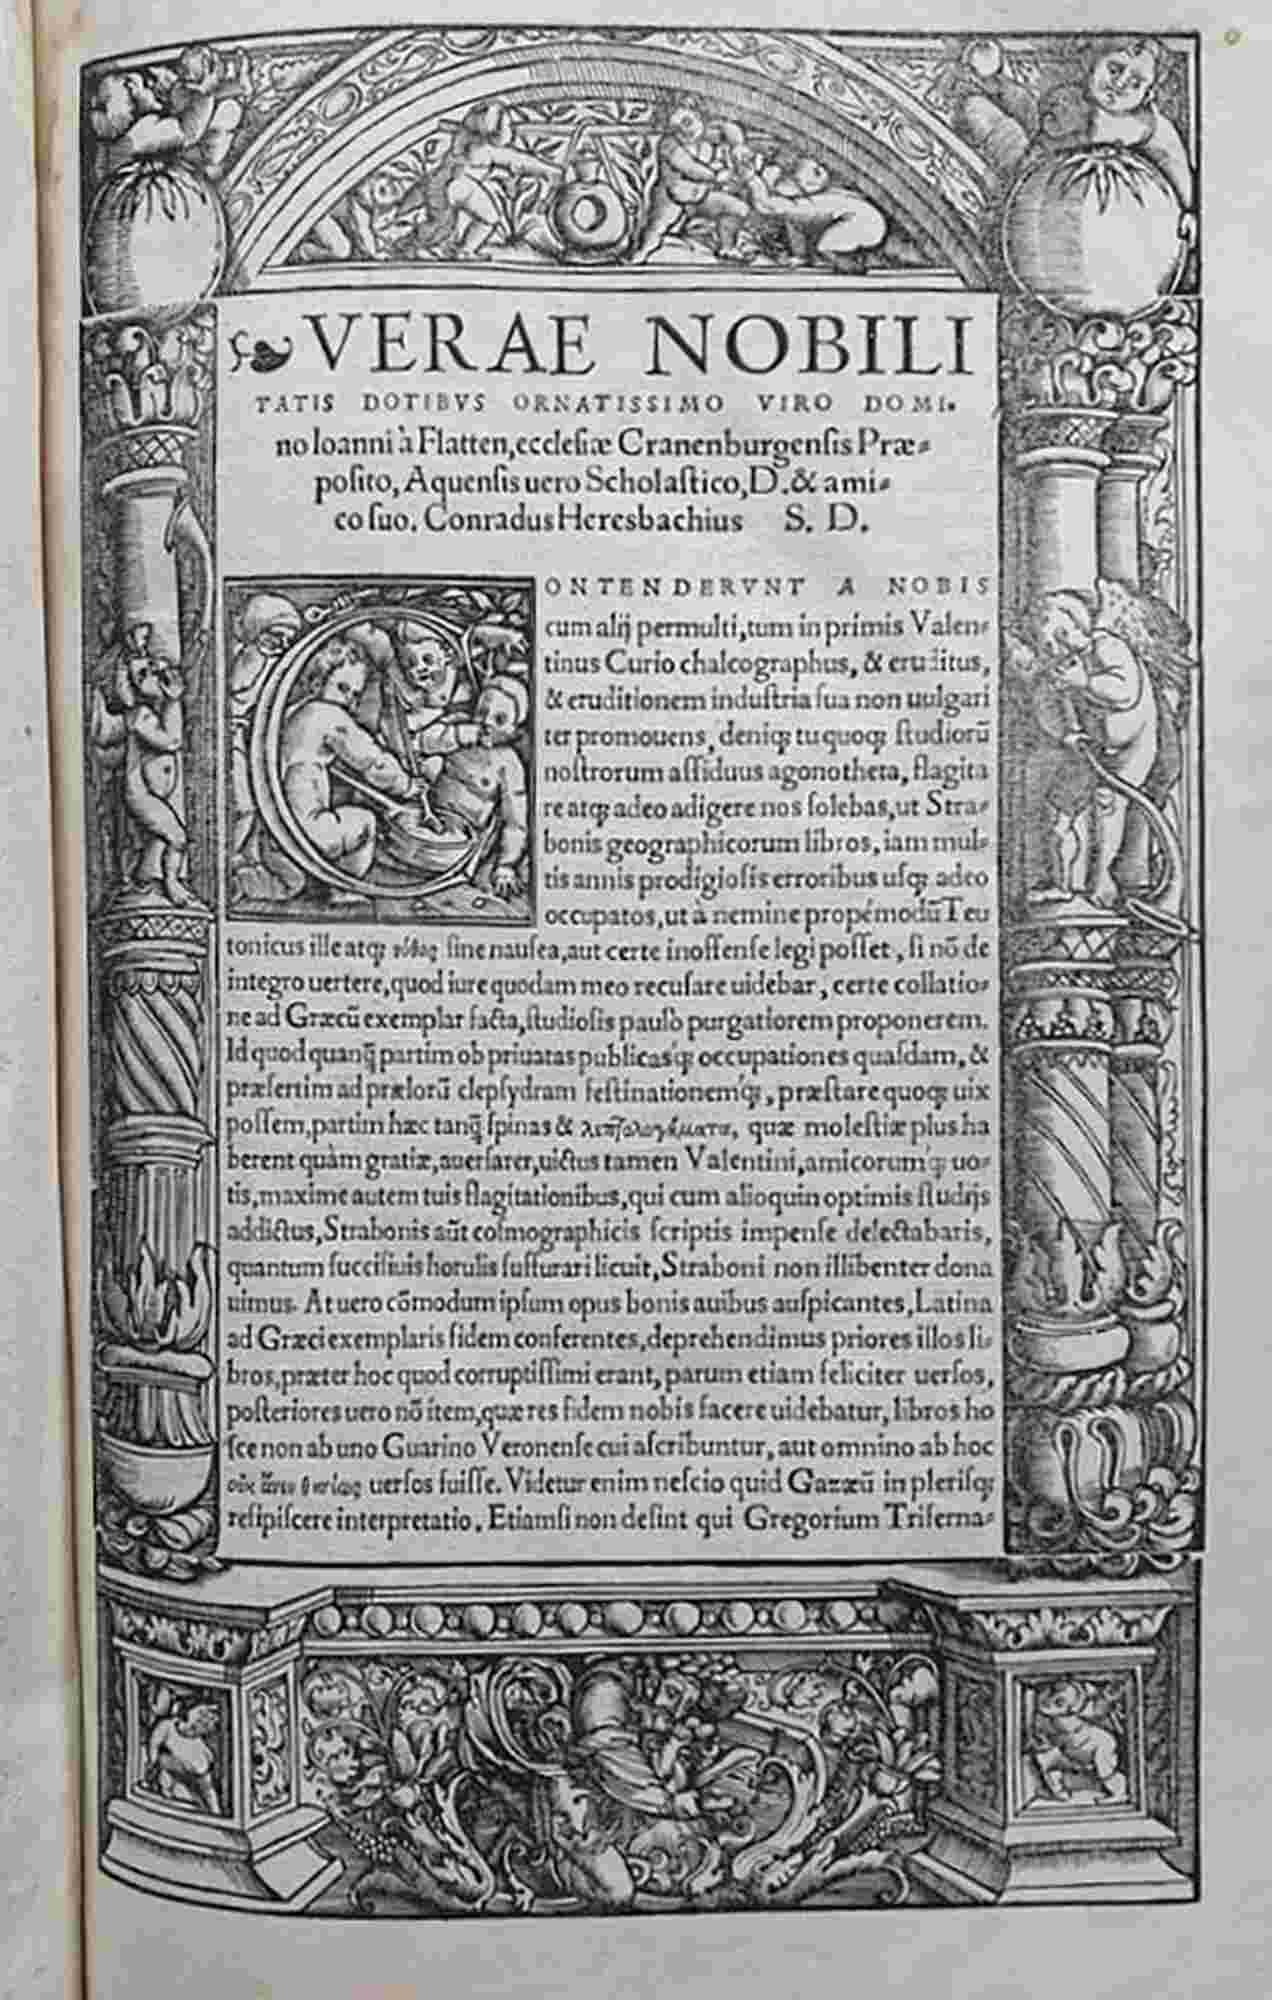 VERAE NOBILI
TATIS DOTIBVS ORNATISSIMO VIRO DOMI.
no Ioanni à Flatten, ecclesiæ Cranenburgensis Præ-
posito, Aquensis uero Scholastico, D. & ami-
co suo. Conradus Heresbachius S. D.
CONTENDERVNT A NOBIS
cum alij permulti, tum in primis Valen-
tinus Curio chalcographus, & eruditus,
& eruditionem industria sua non uulgari
ter promouens, deniqꝫ tu quoqꝫ studiorū
nostrorum assiduus agonotheta, flagita
re atqꝫ adeo adigere nos solebas, ut Stra-
bonis geographicorum libros, iam mul-
tis annis prodigiosis erroribus usqꝫ adeo
occupatos, ut à nemine propémodū Teu
tonicus ille atqꝫ sine nausea, aut certe inoffense legi posset, si nō de
integro uertere, quod iure quodam meo recusare uidebar, certe collatio-
ne ad Græcū exemplar facta, studiosis paulò purgatiorem proponerem.
Id quod quanq̃ partim ob priuatas publicasqꝫ occupationes quasdam, &
præsertim ad prælorū clepsydram festinationemqꝫ, præstare quoqꝫ uix
possem, partim hæc tanq̃ spinas & quæ molestiæ plus ha
berent quàm gratiæ, auersarer, uictus tamen Valentini, amicorumqꝫ uo-
tis, maxime autem tuis flagitationibus, qui cum alioquin optimis studijs
addictus, Strabonis aūt cosmographicis scriptis impense delectabaris,
quantum succisiuis horulis suffurari licuit, Straboni non illibenter dona
uimus. At uero cōmodum ipsum opus bonis auibus auspicantes, Latina
ad Græci exemplaris fidem conferentes, deprehendimus priores illos li-
bros, præter hoc quod corruptissimi erant, parum etiam feliciter uersos,
posteriores uero nō item, quæ res fidem nobis facere uidebatur, libros ho
sce non ab uno Guarino Veronense cui ascribuntur, aut omnino ab hoc
uersos fuisse. Videtur enim nescio quid Gazæū in plerisqꝫ
resipiscere interpretatio. Etiamsi non desint qui Gregorium Triferna-